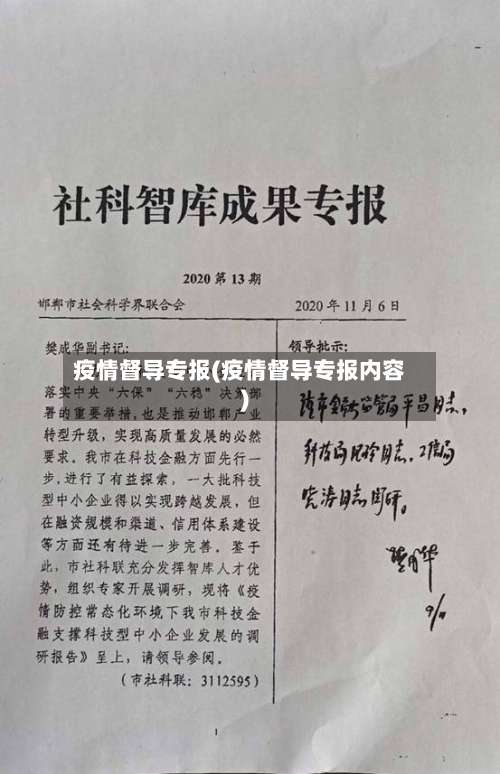 社科智库成果专报
2020 第 13 期
邯郸市社会科学界联合会
2020 年 11 月 6 日
樊成华副书记:
疫情督导专报(疫情督导专报内容
)
落实中央“六保”“六稳”决策部
署的重要举措,也是推动邯郸产业
转型升级,实现高质量发展的必然
要求。我市在科技金融方面先行一
步,进行了有益探索,一大批科技
型中小企业得以实现跨越发展,但
在融资规模和渠道、信用体系建设
等方面还有待进一步完善。鉴于
此,市社科联充分发挥智库人才优
势,组织专家开展调研,现将《疫
情防控常态化环境下我市科技金
融支撑科技型中小企业发展的调
研报告》呈上,请领导参阅。
(市社科联:3112595)
领导批示:
同志。
同志
同志阅研。
9/11
1